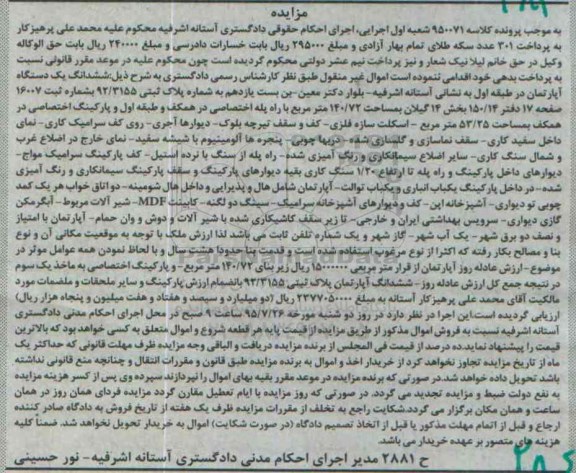 مزایده
به موجب پرونده کلاسه ۹۵۰۰۷۱ شعبه اول اجرایی، اجرای احکام حقوقی دادگستری آستانه اشرفیه محکوم علیه محمد علی پرهیزکار
به پرداخت ۳۰۱ عدد سکه طلای تمام بهار آزادی و مبلغ ۲۹۵۰۰۰ ریال بابت خسارات دادرسی و مبلغ ۲۴۰۰۰۰ ریال بابت حق الوکاله
وکیل در حق خانم لیلا نیک شعار و نیز پرداخت نیم عشر دولتی محکوم گردیده است چون محکوم علیه در موعد مقرر قانونی نسبت
به پرداخت بدهی خود اقدامی ننموده است اموال غیر منقول طبق نظر کارشناس رسمی دادگستری به شرح ذیل:ششدانگ یک دستگاه
آپارتمان در طبقه اول به نشانی آستانه اشرفیه- بلوار دکتر معین- بن بست یازدهم به شماره پلاک ثبتی ۹۲/۳۱۵۵ بشماره ثبت ۱۶۰۰۷
صفحه ۱۷ دفتر ۱۵۰/۱۴ بخش ۱۴ گیلان بمساحت ۱۴۰/۷۲ متر مربع با راه پله اختصاصی در همکف و طبقه اول و پارکینگ اختصاصی در
همکف بمساحت ۵۳/۲۵ متر مربع - اسکلت سازه فلزی- کف و سقف تیرچه بلوک- دیوارها آجری- روی کف سرامیک کاری- نمای
داخل سفید کاری- سقف نماسازی و گلسازی شده- دربها چوبی- پنجره ها آلومینیوم با شیشه سفید- نمای خارج در اضلاع غرب
و شمال سنگ کاری- سایر اضلاع سیمانکاری و رنگ آمیزی شده- راه پله از سنگ با نرده استیل- کف پارکینگ سرامیک مواج-
دیوارهای داخل پارکینگ و راه پله تا ارتفاع ۱/۲۰ سنگ کاری بقیه دیوارهای پارکینگ و سقف پارکینگ سیمانکاری و رنگ آمیزی
شده- در داخل پارکینگ یکباب انباری و یکباب توالت- آپارتمان شامل هال و پذیرایی و داخل هال شومینه- دو اتاق خواب هر یک کمد
چوبی تو دیواری- آشپزخانه اپن- کف و دیوارهای آشپزخانه سرامیک- سینک دو لگنه- کابینت MDF- شیر آلات مربوط- آبگرمکن
گازی دیواری- سرویس بهداشتی ایران و خارجی- تا زیر سقف کاشیکاری شده با شیر آلات و دوش و وان حمام- آپارتمان با امتیاز
و نصف دو برق شهر- یک آب شهر- گاز شهر و یک شماره تلفن ثابت می باشد لذا ارزش ملک با توجه به موقعیت مکانی آن و نوع
بنا و مصالح بکار رفته که اکثرا از نوع مرغوب استفاده شده است و قدمت بنا حدودا هشت سال و با لحاظ نمودن همه عوامل موثر در
موضوع- ارزش عادله روز آپارتمان از قرار متر مربعی ۱۵۰۰۰۰۰۰ ریال زیر بنای ۱۴۰/۷۲ متر مربع- و پارکینگ اختصاصی به ماخذ یک سوم
در نتیجه جمع کل ارزش عادله روز- ششدانگ آپارتمان پلاک ثبتی ۹۲/۳۱۵۵ بانضمام ارزش پارکینگ و سایر ملحقات و ملضمات مورد
مالکیت آقای محمد علی پرهیز کار آستانه به مبلغ ۲۳۷۷۰۵۰۰۰۰ ریال (دو میلیارد و سیصد و هفتاد و هفت میلیون و پنجاه هزار ریال)
ارزیابی گردیده است.این اجرا در نظر دارد در روز دو شنبه مورخه ۹۵/۷/۲۶ ساعت ۹ صبح در محل اجرای احکام مدنی دادگستری
آستانه اشرفیه نسبت به فروش اموال مذکور از طریق مزایده از قیمت پایه هر قطعه شروع و اموال متعلق به کسی خواهد بود که بالاترین
قیمت را پیشنهاد نماید.ده درصد از قیمت فی المجلس از برنده مزایده دریافت و الباقی وجه مزایده ظرف مهلت قانونی که حداکثر یک
ماه از تاریخ مزایده تجاوز نخواهد کرد از خریدار اخذ و اموال به برنده مزایده طبق قانون و مقررات انتقال و چنانچه منع قانونی نداشته
باشد تحویل داده خواهد شد.در صورتی که برنده مزایده در موعد مقرر بقیه بهای اموال را نپردازند سپرده وی پس از کسر هزینه مزایده
به نفع دولت ضبط و مزایده تجدید می گردد. در صورتی که روز مزایده با ایام تعطیل مقارن گردد مزایده فردای همان روز در همان
ساعت و همان مکان برگزار می گردد.شکایت راجع به تخلف از مقررات مزایده ظرف یک هفته از تاریخ فروش به دادگاه صادر کننده
ارجاع و قبل از اتمام مهلت مذکور یا قبل از اتخاذ تصمیم دادگاه (در صورت شکایت) اموال به خریدار تحویل نخواهد شد. ضمناً کلیه
هزینه های متصور بر عهده خریدار می باشد.
ح ۲۸۸۱ مدیر اجرای احکام مدنی دادگستری آستانه اشرفیه- نور حسینی